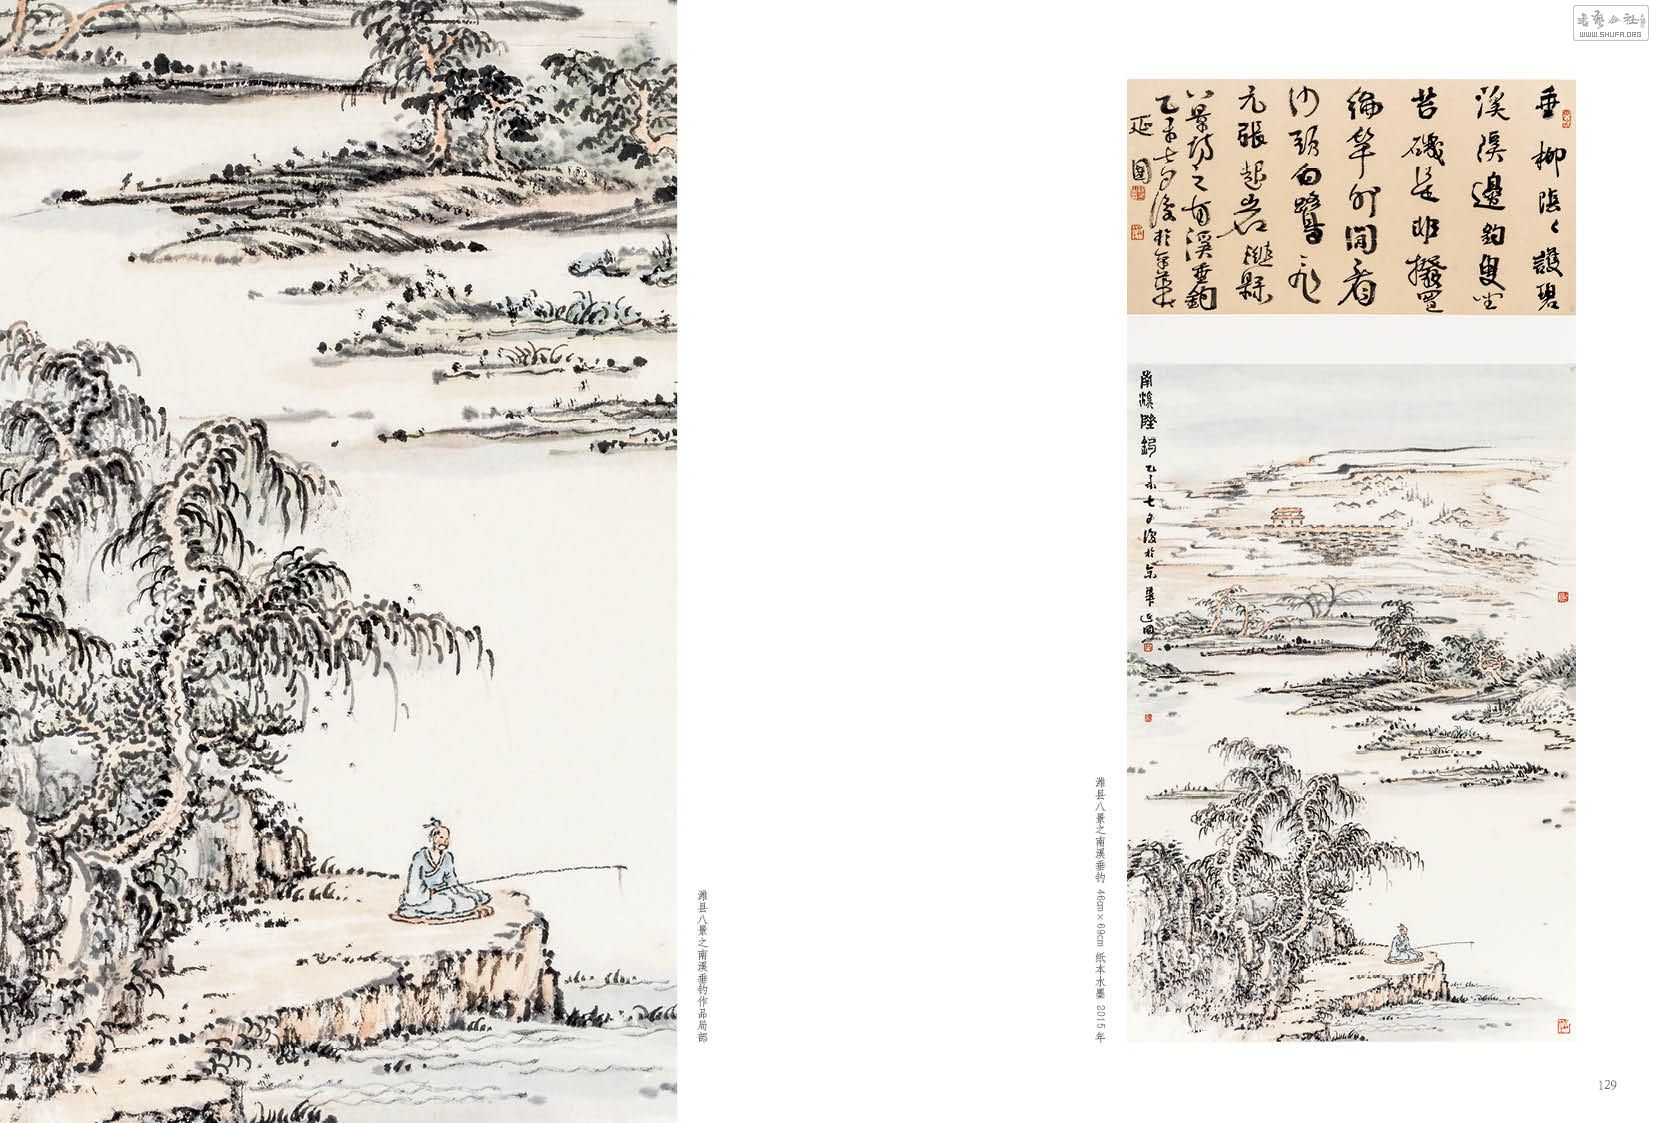 书艺公社
WWW.SHUFA.ORG
垂柳隂〻護碧
溪溪邊釣叟坐
苔磯是非撥置
綸竿外閒看
沙頭白鷺飛
元張起岩濰縣
八景詩之南溪垂釣
乙未七夕後於京華
延
南溪垂釣 乙未七夕後於京華延
潍县八景之南溪垂钓 46cm×69cm 纸本水墨 2015年
潍县八景之南溪垂钓作品局部
129